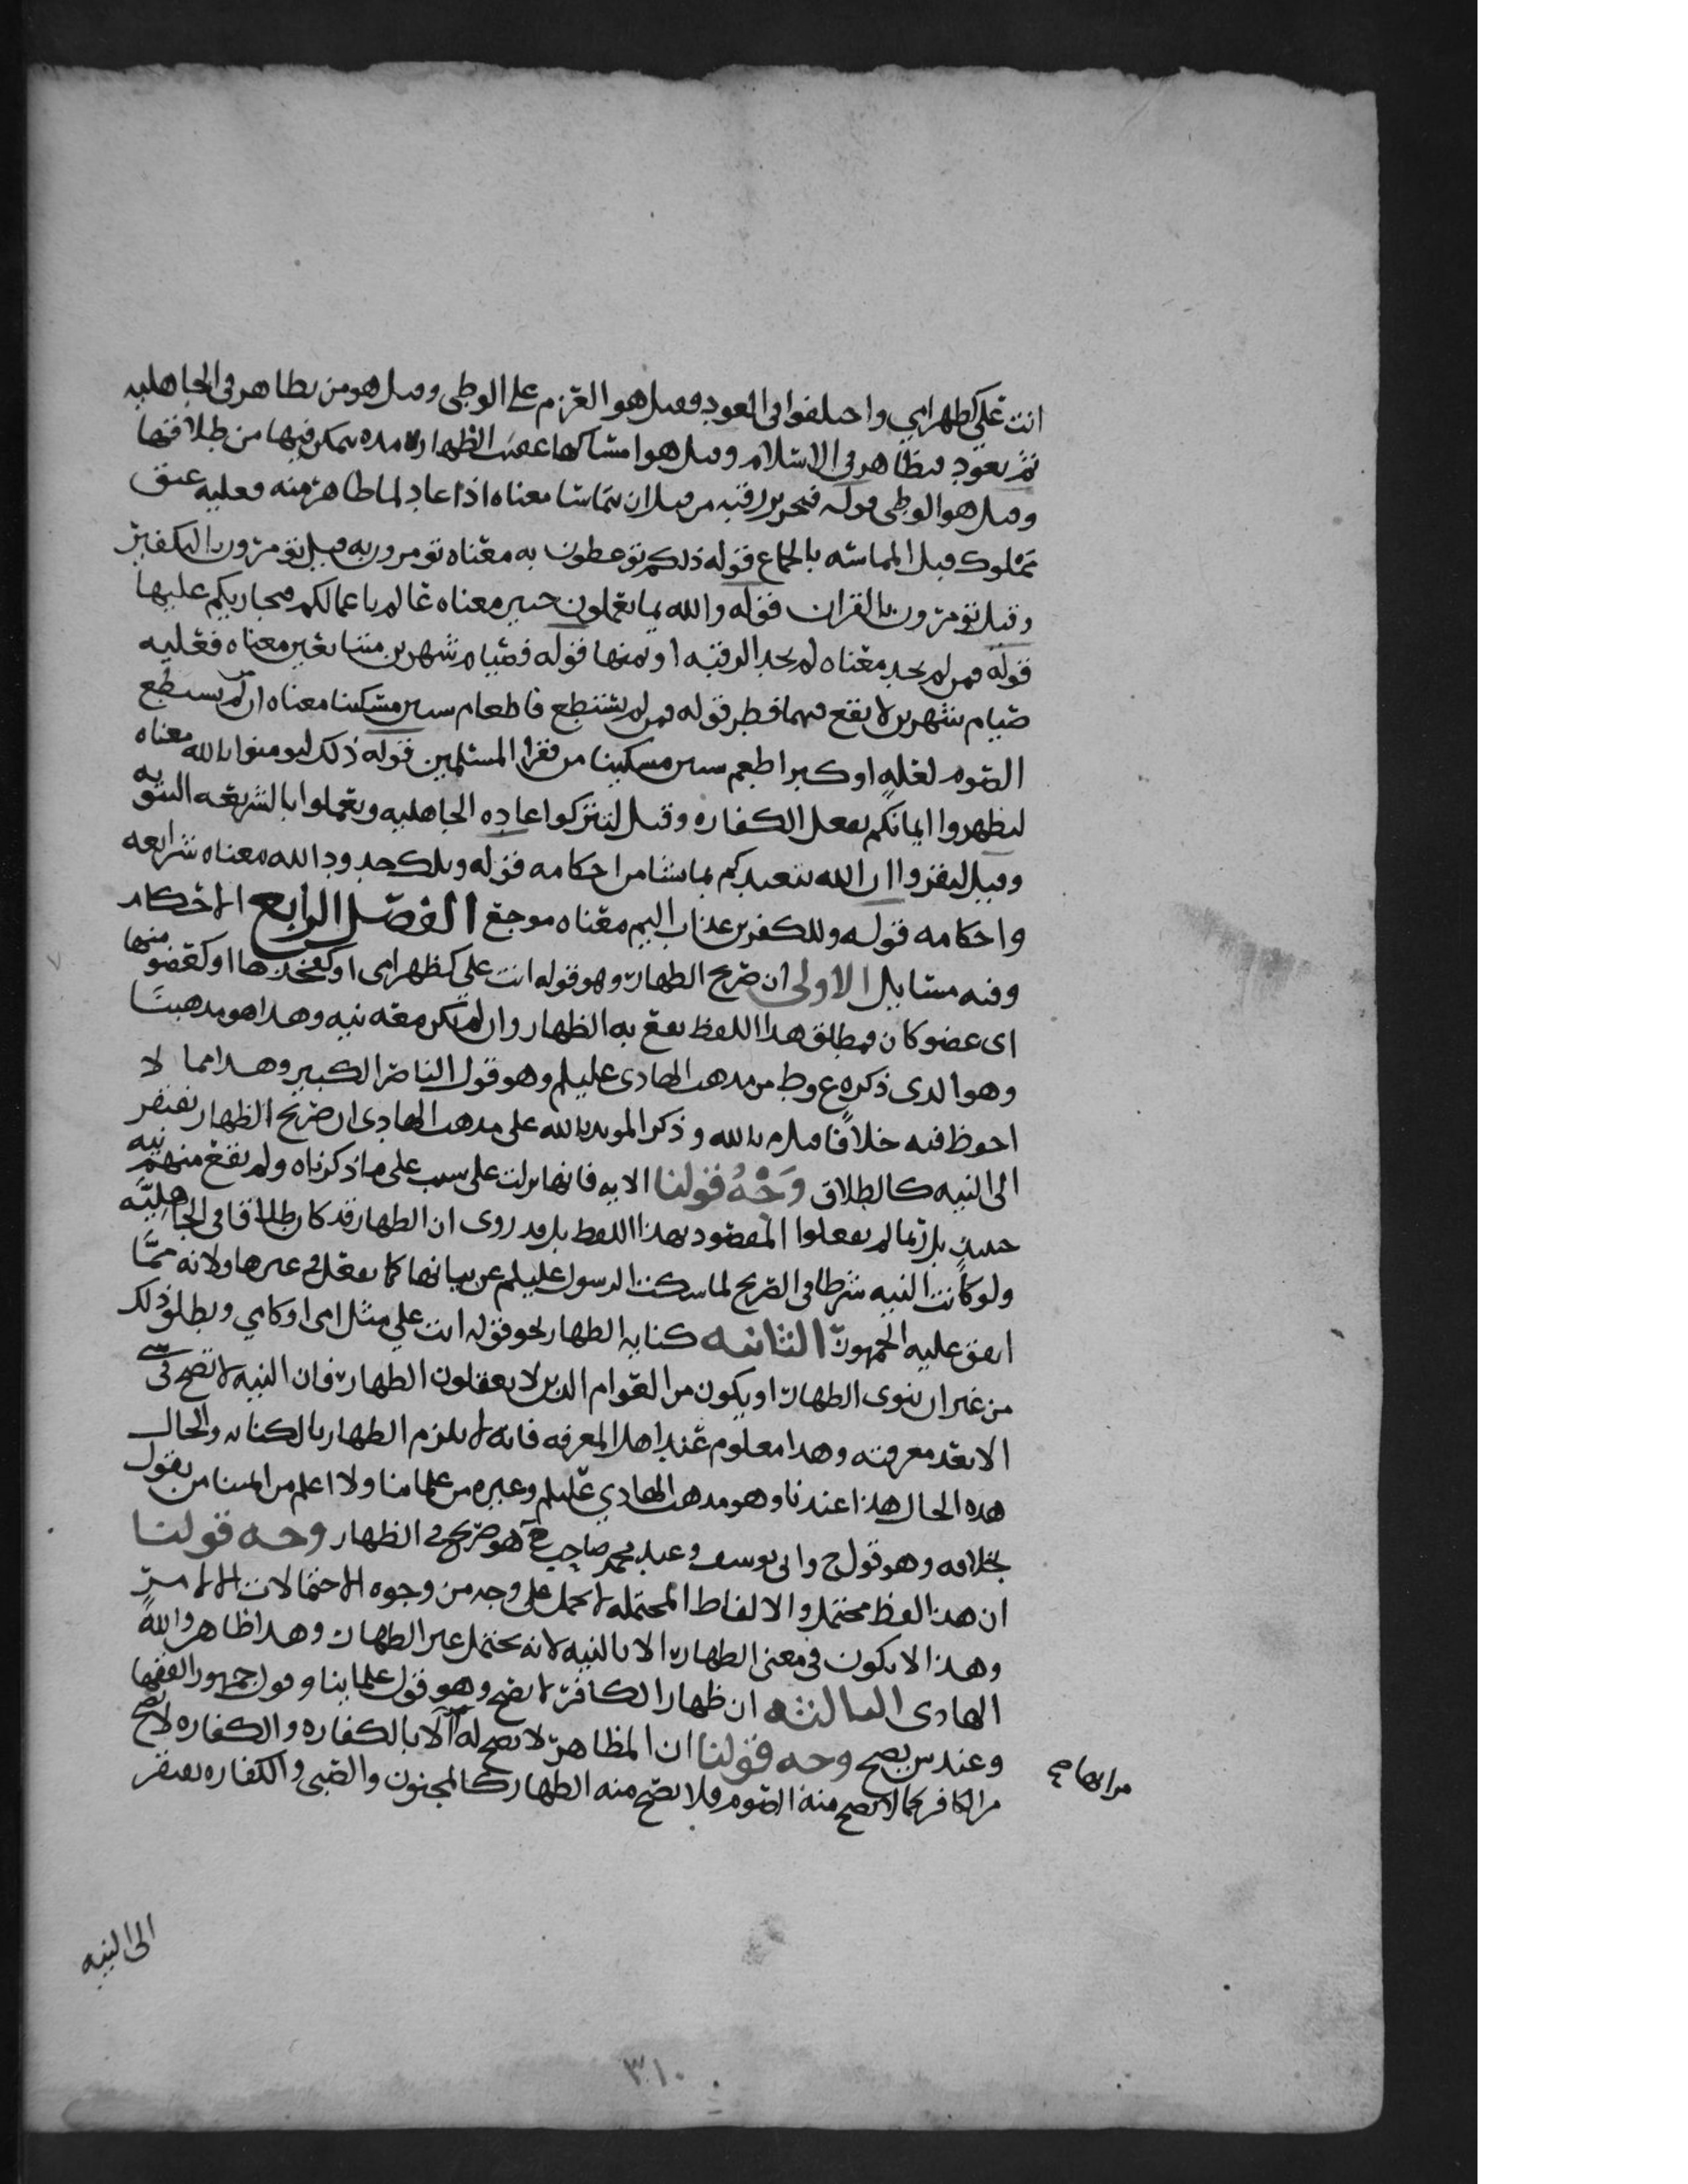 انت علي كظهر امي واختلفوا في العود فقيل هو العزم على الوطي وقيل هو من يظاهر في الجاهليه
ثم يعود فيظاهر في الاسلام وقيل هو امساكها عقيب الظهار مده يمكن فيها من طلاقها
وقيل هو الوطي قوله فتحرير رقبه من قبل ان يتماسا معناه اذا عاد لما ظاهر منه فعليه عتق
مملوك قبل المماسه بالجماع قوله ذلكم توعظون به معناه تومرون به وقيل تومرون بالتكفير
وقيل تومرون بالقران قوله والله بما تعملون خبير معناه عالم باعمالكم فيجازيكم عليها
قوله فمن لم يجد معناه لم يجد الرقبه او ثمنها قوله فصيام شهرين متتابعين معناه فعليه
صيام شهرين لا يقع فيهما فطر قوله فمن لم يستطع فاطعام ستين مسكينا معناه ان لم يستطع
الصوم لعله او كبر اطعم ستين مسكينا من فقرا المسلمين قوله ذلك ليومنوا بالله معناه
ليظهروا ايمانكم بفعل الكفاره وقيل لتتركوا عاده الجاهليه وتعملوا بالشريعه النبويه
وقيل ليقروا ان الله تعبدكم بما شا من احكامه قوله وتلك حدود الله معناه شرايعه
واحكامه قوله وللكفرين عذاب اليم معناه موجع الفصل الرابع الاحكام
وفيه مسايل الاولى ان صريح الظهار وهو قوله انت علي كظهر امي او كفخذها او كعضو منها
اي عضو كان فمطلق هذا اللفظ يقع به الظهار وان لم تكن معه نيه وهذا هو مذهبنا
وهو الذي ذكره ع وط من مذهب الهادي عليلم وهو قول الناصر الكبير وهذا مما لا
احفظ فيه خلافا قبل م بالله وذكر المويد بالله على مذهب الهادي ان صريح الظهار يفتقر
الى النيه كالطلاق وجه قولنا الايه فانها نزلت على سبب على ما ذكرناه ولم تقع منهم نيه
حينيذ بل ربما لم يفعلوا المقصود بهذا اللفظ بل قد روى ان الظهار قد كان طلاقا في الجاهليه
ولو كانت النيه شرطا في الصريح لما سكت الرسول عليلم عن بيانها كما يفعل في غيرها ولانه مما
اتفق عليه الجمهور الثانيه كنايه الظهار نحو قوله انت علي مثل امي او كامي ويطلق ذلك
من غير ان ينوى الظهار او يكون من العوام الذين لا يعقلون الظهار فان النيه لا تصح في شي
الا بعد معرفته وهذا معلوم عند اهل المعرفه فانه لا يلزم الظهار بالكنايه والحال
هذه الحال هذا عندنا وهو مذهب الهادي عليلم وغيره من علمائنا ولا اعلم من ايمتنا من يقول
بخلافه وهو قول ح وابي يوسف وعند محمد صاحب ح هو صريح في الظهار وجه قولنا
ان هذا لفظ محتمل والالفاظ المحتمله لا تحمل على وجه من وجوه الاحتمالات الا لامر
وهذا لا يكون في معنى الظهار الا بالنيه لانه يحتمل غير الظهار وهذا ظاهر والله
الهادي الثالثه ان ظهار الكافر لا يصح وهو قول علماينا وقول جمهور الفقها
وعند ش يصح وجه قولنا ان المظاهر لا يصح له الا بالكفاره والكفاره لا تصح
من الكافر كما لا يصح منه الصوم فلا يصح منه الظهار كالمجنون والصبي والكفاره تفتقر
الى النيه
٣١٠